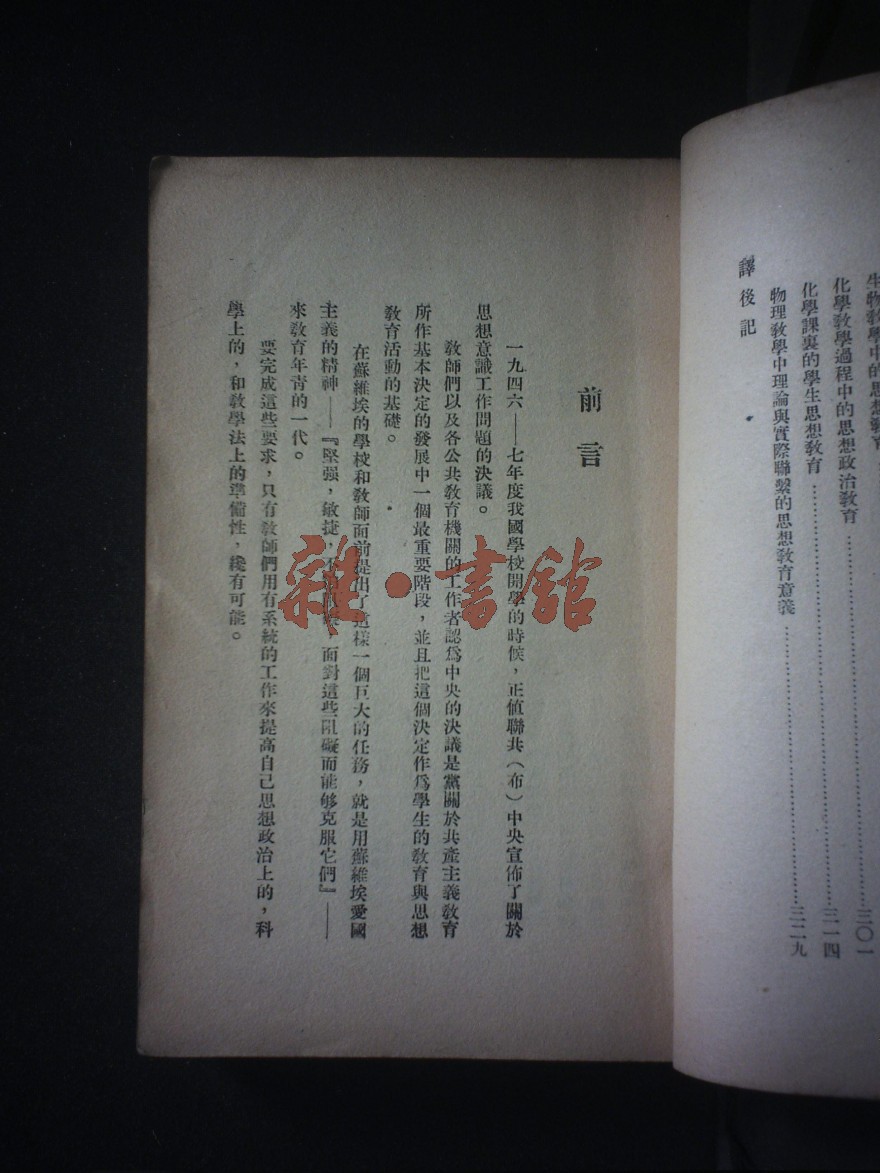 生物教學中的思想教育
化學教學過程中的思想政治教育……三〇一
化學課裏的學生思想教育……三一四
物理教學中理論與實際聯繫的思想教育意義……三二九
譯後記
前言
一九四六——七年度我國學校開學的時候，正值聯共（布）中央宣佈了關於
思想意識工作問題的決議。
教師們以及各公共教育機關的工作者認爲中央的決議是黨關於共產主義教育
所作基本決定的發展中一個最重要階段，並且把這個決定作爲學生的教育與思想
教育活動的基礎。
在蘇維埃的學校和教師面前提出了這樣一個巨大的任務，就是用蘇維埃愛國
主義的精神——『堅强，敏捷，不，面對這些阻礙而能够克服它們』——
來教育年青的一代。
要完成這些要求，只有教師們用有系統的工作來提高自己思想政治上的，科
學上的，和教學法上的準備性，纔有可能。
雜·書館